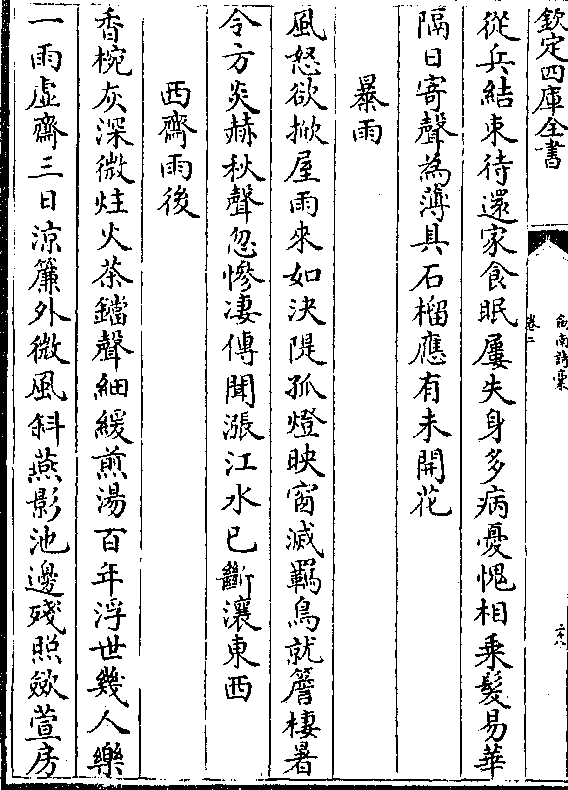 欽定四庫全書
劍南詩稾
卷二
從兵結束待還家食眠屢失身多病憂愧相乘髮易華
隔日寄聲為薄具石榴應有未開花
暴雨
風怒欲掀屋雨來如決隄孤燈映窗滅羈鳥就簷棲暑
令方炎赫秋聲忽慘凄傳聞漲江水已斷瀼東西
西齋雨後
香椀灰深微炷火茶鐺聲細緩煎湯百年浮世幾人樂
一雨虛齋三日涼簾外微風斜燕影池邊殘照斂萱房